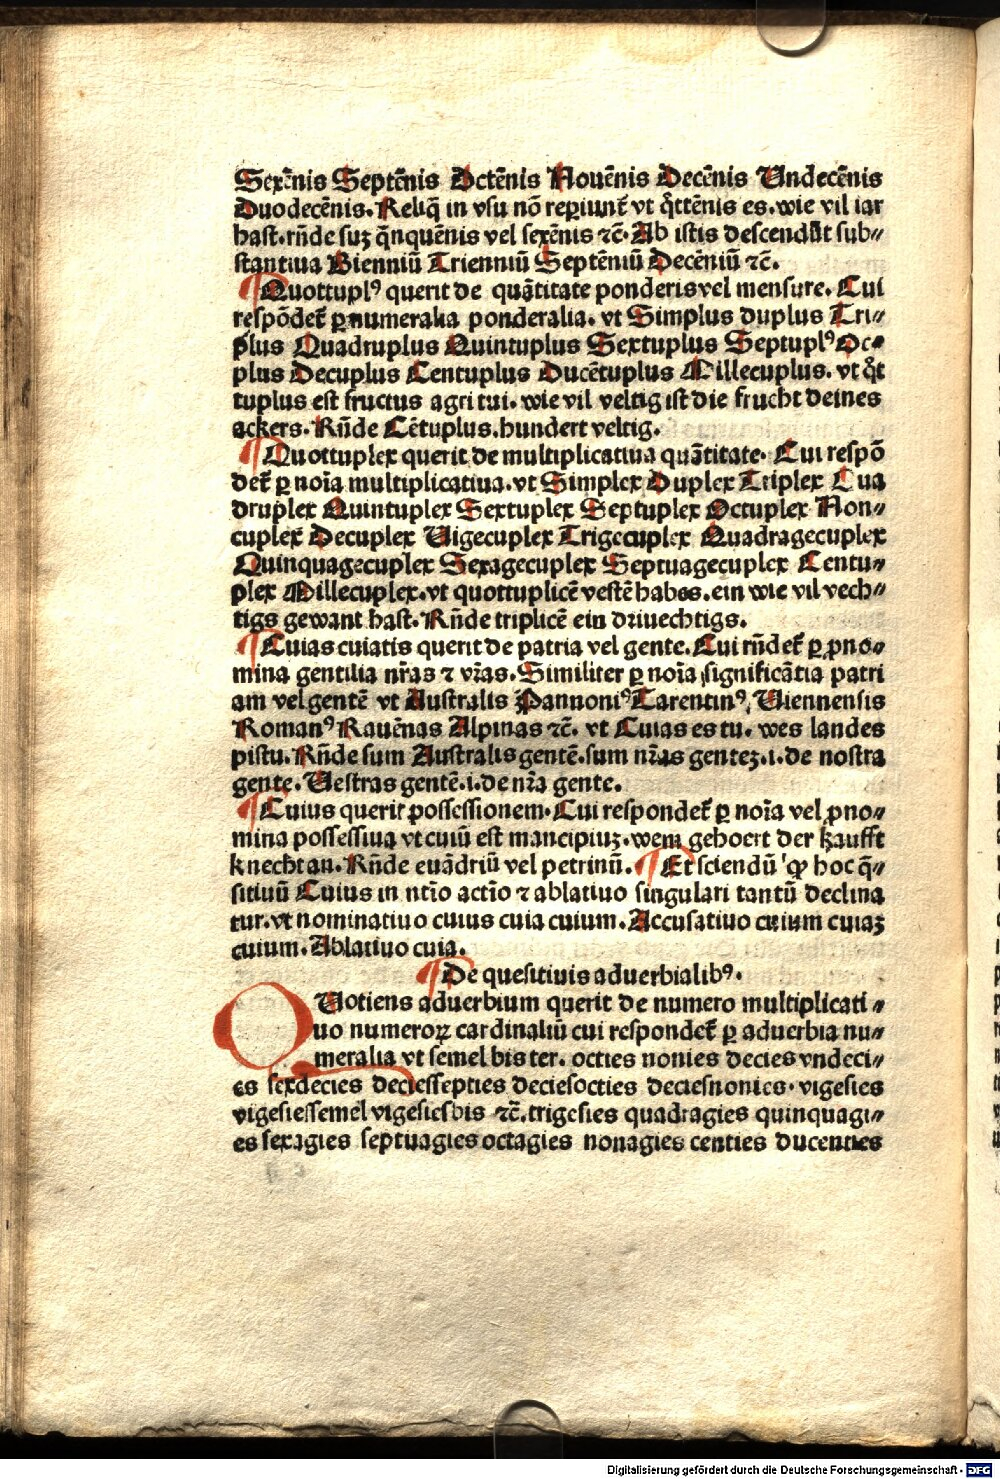 Sexēnis Septēnis Octēnis Nouēnis Decēnis Undecēnis
Duodecēnis. Reliq̄ in vsu nō reꝑiunt̄ vt q̊ttēnis es. wie vil iar
hast. rn̄de suʒ q̄nquēnis vel sexēnis ⁊c̄. Ab istis descendūt sub⸗
stantiua Bienniū Trienniū Septēniū Decēniū ⁊c̄.
¶ Quottuplꝰ querit de quātitate ponderis vel mensure. Cui
respōdet̄ ꝑ numeralia ponderalia. vt Simplus duplus Tri⸗
plus Quadruplus Quintuplus Sextuplus Septuplꝰ Oc⸗
plus Decuplus Centuplus Ducētuplus Millecuplus. vt q̊t
tuplus est fructus agri tui. wie vil veltig ist die frucht deines
ackers. Rn̄de Cētuplus. hundert veltig.
¶ Quottuplex querit de multiplicatiua quātitate. Cui respō
det̄ ꝑ noīa multiplicatiua. vt Simplex Duplex Triplex Qua
druplex Quintuplex Sextuplex Septuplex Octuplex Non⸗
cuplex Decuplex Uigecuplex Trigecuplex Quadragecuplex
Quinquagecuplex Sexagecuplex Septuagecuplex Centu⸗
plex Millecuplex. vt quottuplicē vestē habes. ein wie vil vech⸗
tigs gewant hast. Rn̄de triplicē ein driuechtigs.
¶ Cuias cuiatis querit de patria vel gente. Cui rn̄det̄ ꝑ ꝓno⸗
mina gentilia nr̄as ⁊ vr̄as. Similiter ꝑ noīa significātia patri
am vel gentē vt Australis Pannoniꝰ Tarentinꝰ, Uiennensis
Romanꝰ Rauēnas Alpinas ⁊c̄. vt Cuias es tu. wes landes
pistu. Rn̄de sum Australis gentē. sum nr̄as genteʒ .i. de nostra
gente. Uestras gentē .i. de nr̄a gente.
¶ Cuius querit possessionem. Cui respondet̄ ꝑ noīa vel ꝓno⸗
mina possessiua vt cuiū est mancipiuʒ. wem gehoert der kaufft
knecht an. Rn̄de euādriū vel petrinū. ¶ Et sciendū ꝙ hoc q̄⸗
sitiuū Cuius in ntīo actīo ⁊ ablatiuo singulari tantū declina
tur. vt nominatiuo cuius cuia cuium. Accusatiuo cuium cuiaʒ
cuium. Ablatiuo cuia.
¶ De quesitiuis aduerbialibꝰ.
QUotiens aduerbium querit de numero multiplicati⸗
uo numeroꝝ cardinaliū cui respondet̄ ꝑ aduerbia nu⸗
meralia vt semel bis ter. octies nonies decies vndeci⸗
es sexdecies deciessepties deciesocties deciesnonies. vigesies
vigesiessemel vigesiesbis ⁊c̄. trigesies quadragies quinquagi⸗
es sexagies septuagies octagies nonagies centies ducenties
Digitalisierung gefördert durch die Deutsche Forschungsgemeinschaft - DFG